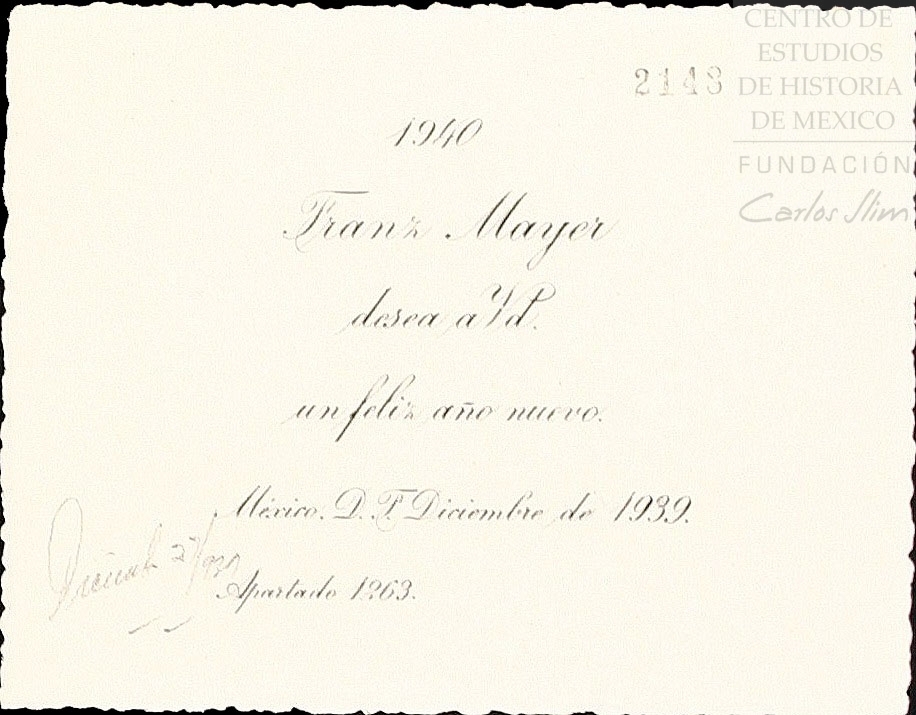 CENTRO DE
ESTUDIOS
DE HISTORIA
DE MEXICO
FUNDACIÓN
Carlos Slim
2148
1940
Franz Mayer
desea a Vd.
un feliz año nuevo.
México, D. F. Diciembre de 1939.
27/939
Apartado 1263.